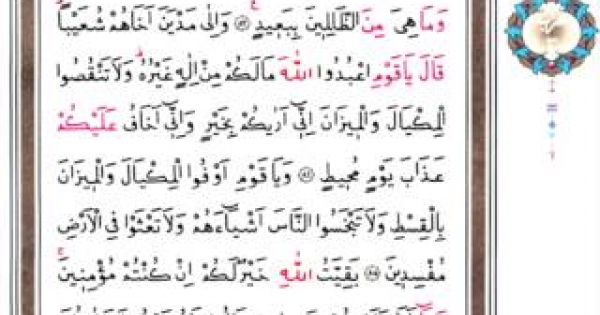 وَمَا هِيَ مِنَ الظَّالِمٖينَ بِبَعٖيدٍ ﴿٨٣﴾ وَاِلٰى مَدْيَنَ اَخَاهُمْ شُعَيْباًؕ
قَالَ يَاقَوْمِ اعْبُدُوا اللّٰهَ مَالَكُمْ مِنْ اِلٰهٍ غَيْرُهُؕ وَلَا تَنْقُصُوا
الْمِكْيَالَ وَالْمٖيزَانَ اِنّٖٓي اَرٰيكُمْ بِخَيْرٍ وَاِنّٖٓي اَخَافُ عَلَيْكُمْ
عَذَابَ يَوْمٍ مُحٖيطٍ ﴿٨٤﴾ وَيَاقَوْمِ اَوْفُوا الْمِكْيَالَ وَالْمٖيزَانَ
بِالْقِسْطِ وَلَا تَبْخَسُوا النَّاسَ اَشْيَٓاءَهُمْ وَلَا تَعْثَوْا فِي الْاَرْضِ
مُفْسِدٖينَ ﴿٨٥﴾ بَقِيَّتُ اللّٰهِ خَيْرٌ لَكُمْ اِنْ كُنْتُمْ مُؤْمِنٖينَۚ